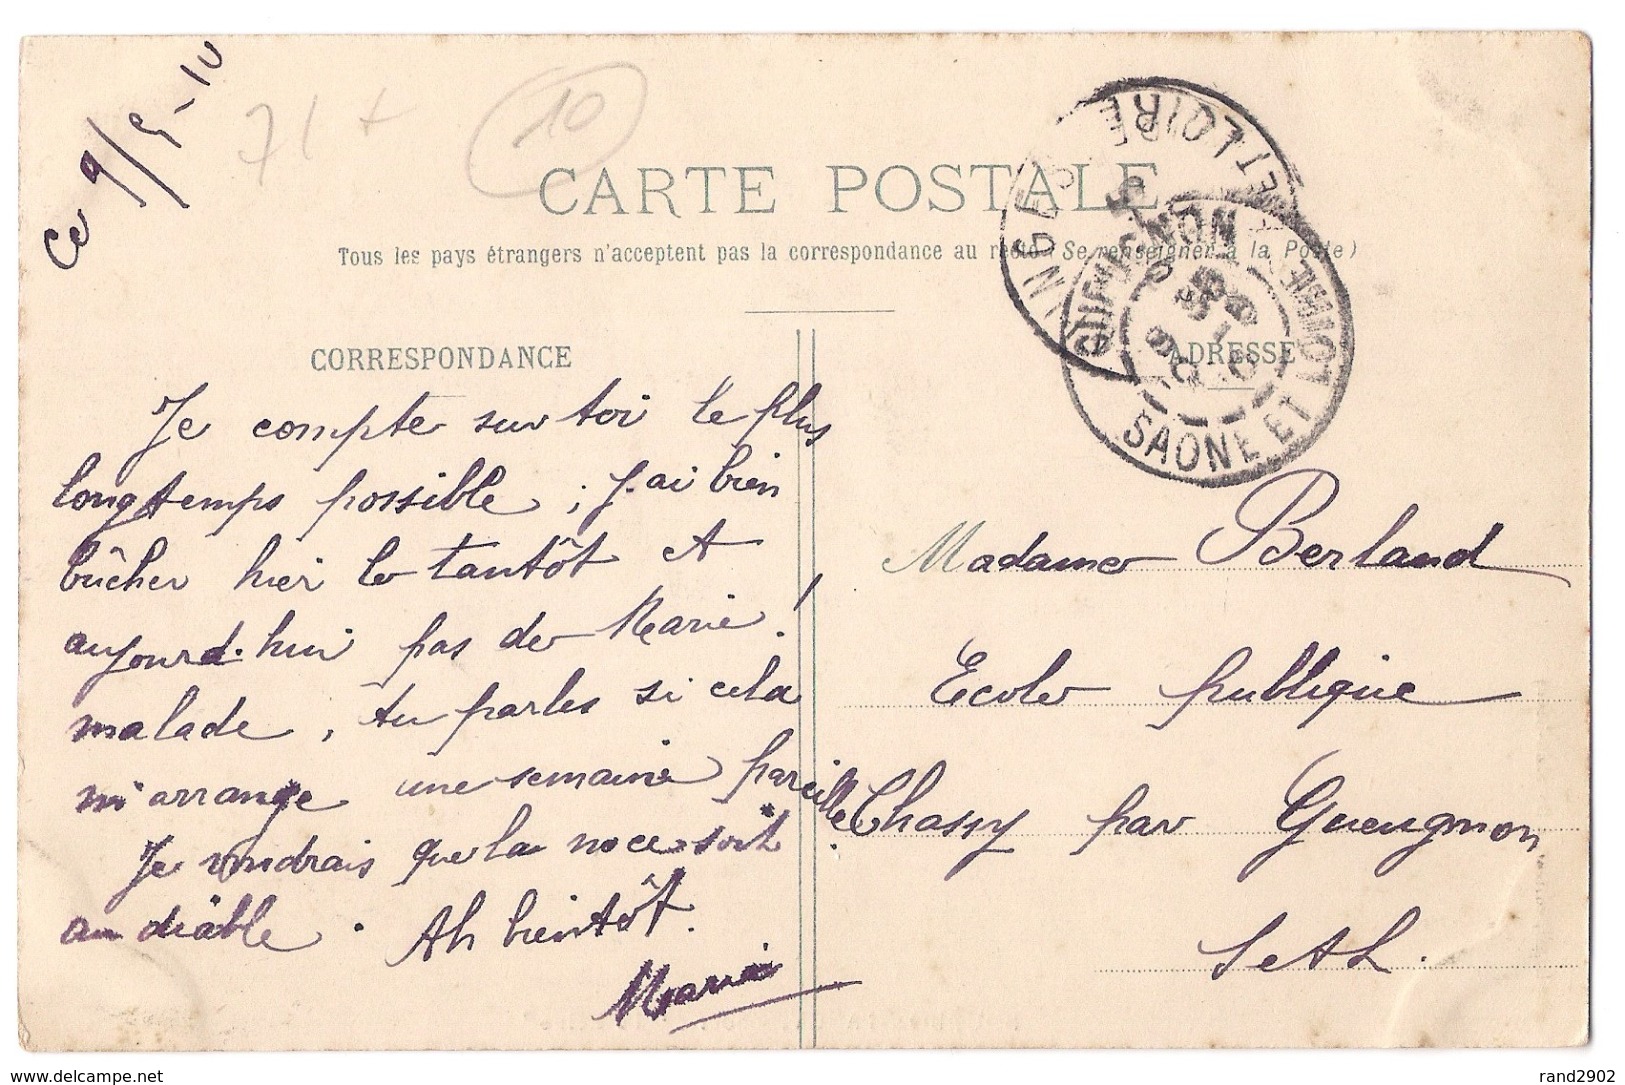 Ce 9/5-10
71 +
10
CARTE POSTALE
Tous les pays étrangers n'acceptent pas la correspondance au recto (Se renseigner à la Poste)
CORRESPONDANCE
ADRESSE
ET LOIRE
GUEUGNON
SAONE ET LOIRE
Je compte sur toi le plus
longtemps possible ; j'ai bien
bûcher hier le tantôt et
aujourd'hui pas de Marie !
malade, tu parles si cela
m'arrange une semaine pareille.
Je voudrais que la noce soit
au diable. Ah bientôt.
Marie
Madame Berland
Ecole publique
Chassy par Gueugnon
S et L.
www.delcampe.net
rand2902